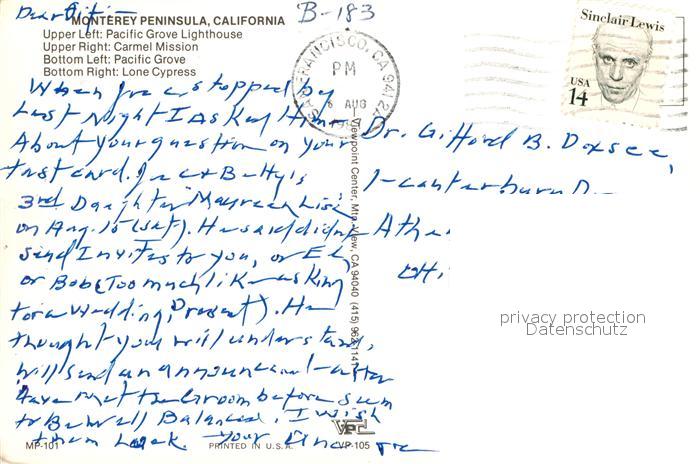 Dear Gif:-
B-183
MONTEREY PENINSULA, CALIFORNIA
Upper Left: Pacific Grove Lighthouse
Upper Right: Carmel Mission
Bottom Left: Pacific Grove
Bottom Right: Lone Cypress
When Joe stopped by
Last Night I Asked Him
About your question on your
last card. Jac & Betty's
3rd Daughter
on Aug. 15 (Sat). He said didnt
send Invites to you, or El,
or Bob (Too much like asking
for a Wedding Present). He
thought you will understand,
will send an announcement after
Have met the Groom before seem
to Be Well Balanced. I Wish
them Luck. Your
MP-101
PRINTED IN U.S.A.
VP-105
Viewpoint Center, Mtn. View, CA 94040 (415) 962-1141
SAN FRANCISCO, CA 941
PM
6 AUG
Sinclair Lewis
USA
14
Dr. Gifford B. Doxsee,
1-canterbury D
Athe
OHi
privacy protection
Datenschutz